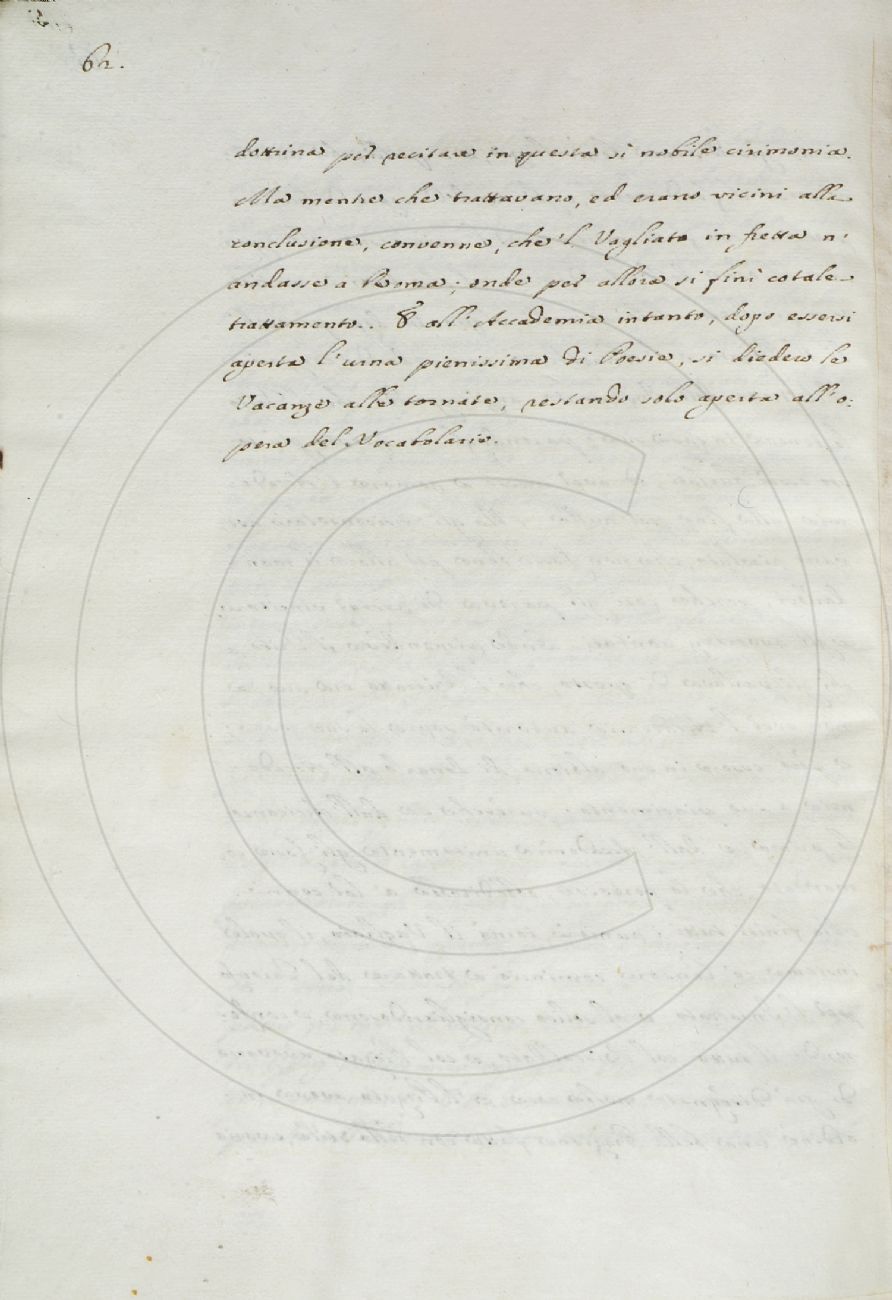 62.
dottrina per recitare in questa sì nobile cirimonia.
Ma mentre che trattavano, ed erano vicini alla
conclusione, convenne, che 'l Vagliato in fretta n'
andasse a Roma; onde per allora si finì cotale
trattamento. E all' Accademia intanto, dopo essersi
aperta l'urna pienissima di Poesie, si diedero le
Vacanze alle tornate, restando solo aperta all'o:
pera del Vocabolario.